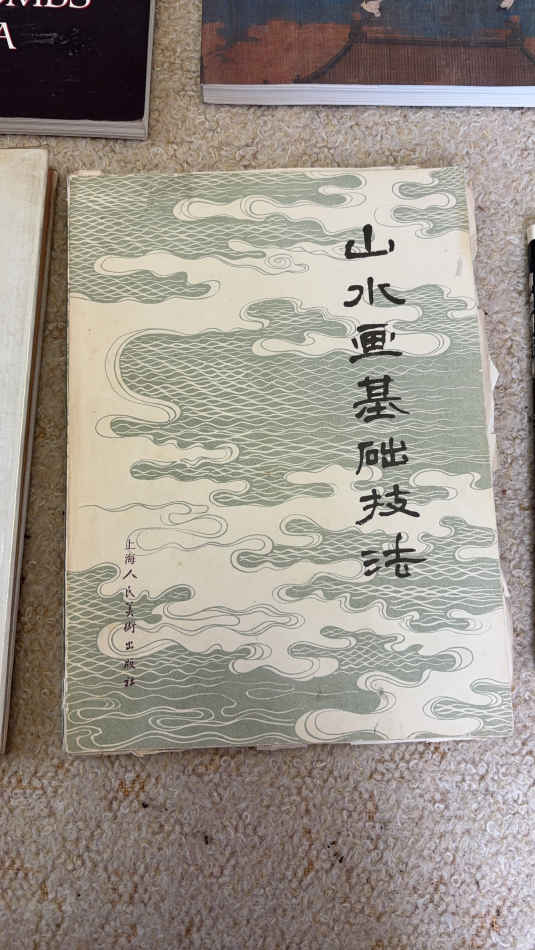 A
山水画基础技法
上海人民美術出版社